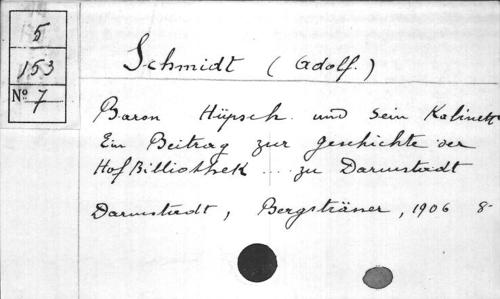 5
153
Nº 7
Schmidt (Adolf.)
Baron Hüpsch und sein Kabinett
Ein Beitrag zur Geschichte der
Hof Bibliothek ... zu Darmstadt
Darmstadt, Bergsträsser, 1906 8-